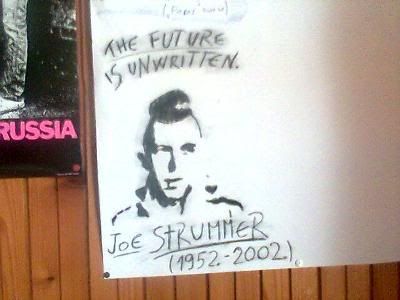 THE FUTURE
IS UNWRITTEN.
RUSSIA
JOE STRUMMER
(1952.-2002.)